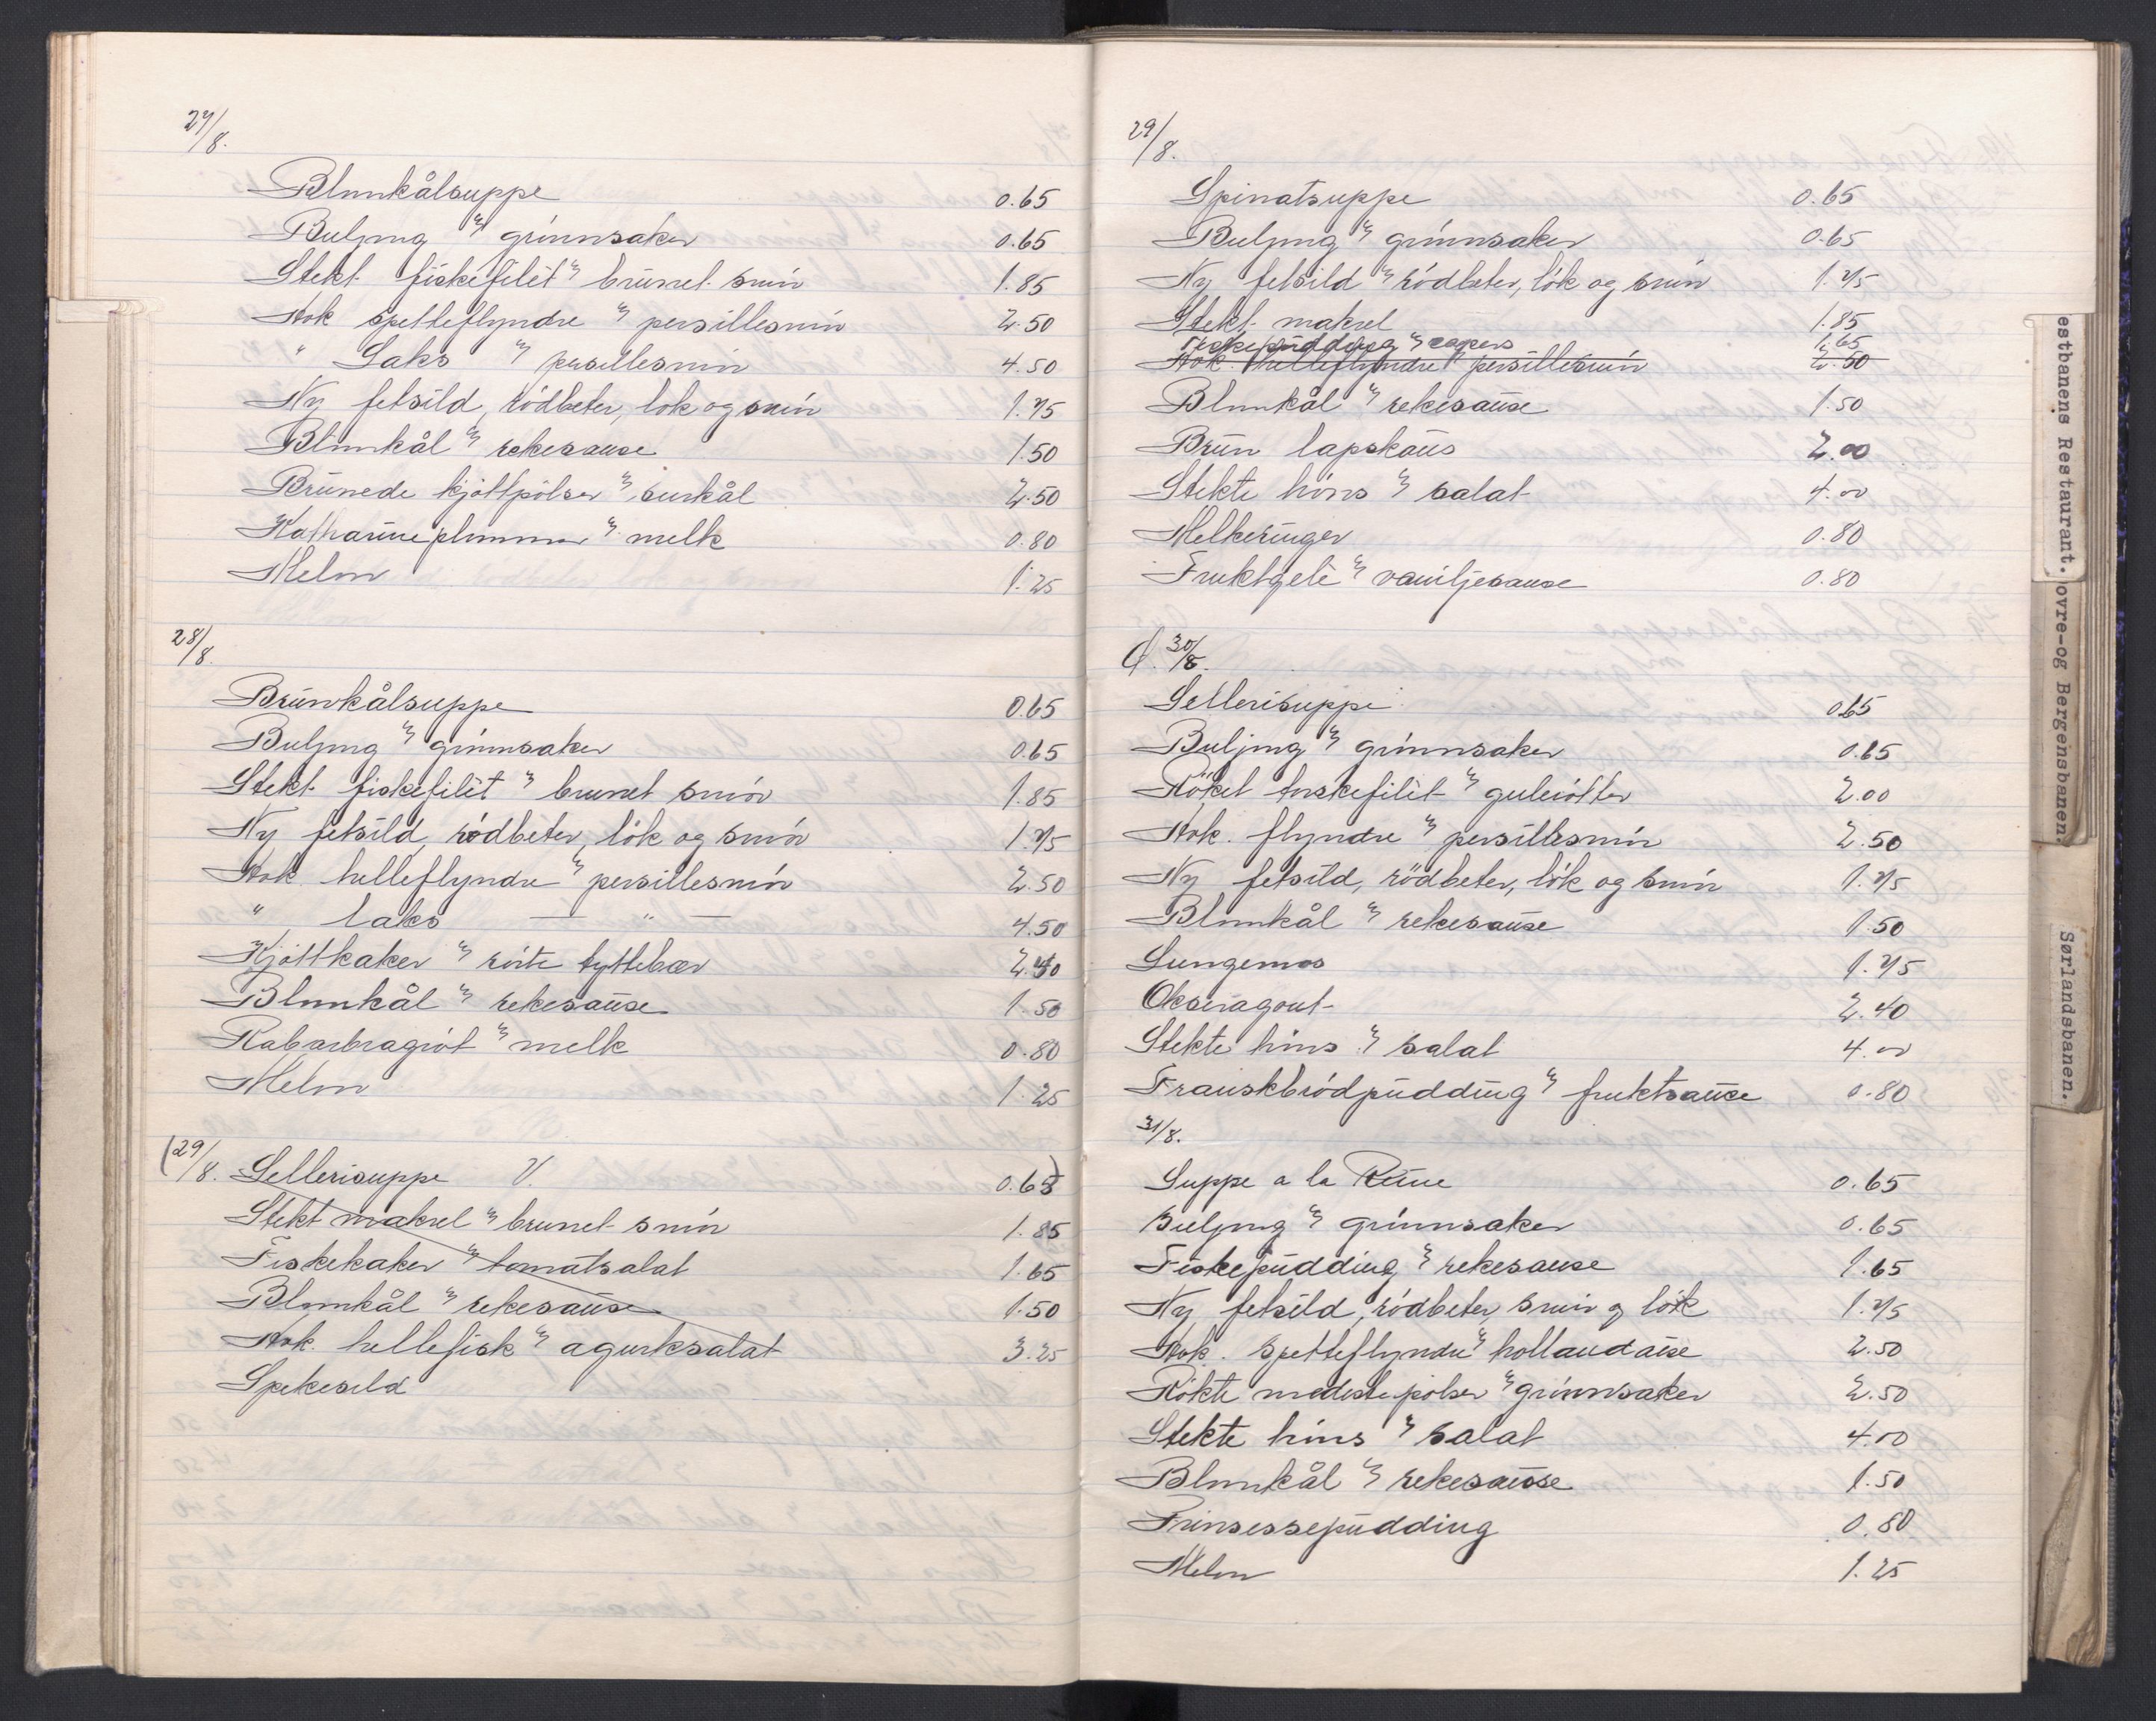 27/8.
Blomkålsuppe 0.65
Buljong m/ grönnsaker 0.65
Stekt fiskefilèt m/ brunet smör 1.85
Kok spetteflyndre m/ persillesmör 2.50
" Laks m/ persillesmör 4.50
Ny fetsild, rödbeter, lök og smör 1.75
Blomkål m/ rekesause 1.50
Brunede kjöttpölser m/ surkål 2.50
Katharineplommer m/ melk 0.80
Melon 1.25
28/8.
Brunkålsuppe 0.65
Buljong m/ grönnsaker 0.65
Stekt fiskefilèt m/ brunet smör 1.85
Ny fetsild, rödbeter, lök og smör 1.75
Kok helleflyndre m/ persillesmör 2.50
" laks — " — 4.50
Kjöttkaker m/ rörte tyttebær 2.40
Blomkål m/ rekesause 1.50
Rabarbragröt m/ melk 0.80
Melon 1.25
(29/8. Sellerisuppe V. 0.65)
Stekt makrel m/ brunet smör 1.85
Fiskekaker m/ tomatsalat 1.65
Blomkål m/ rekesause 1.50
Kok. hellefisk m/ agurksalat 3.25
Spekesild
29/8.
Spinatsuppe 0.65
Buljong m/ grönnsaker 0.65
Ny fetsild m/ rödbeter, lök og smör 1.75
Stekt makrel 1.85
Fiskepudding m/ capers 1.65
Kok. helleflyndre m/ persillesmör 2.50
Blomkål m/ rekesause 1.50
Brun lapskaus 2.00
Stekte höns m/ salat 4.00
Melkeringer 0.80
Fruktgelè m/ vaniljesause 0.80
d. 30/8.
Sellerisuppe 0.65
Buljong m/ grönnsaker 0.65
Röket torskefilèt m/ gulerötter 2.00
Kok. flyndre m/ persillesmör 2.50
Ny fetsild, rödbeter, lök og smör 1.75
Blomkål m/ rekesause 1.50
Lungemos 1.75
Okseragout 2.40
Stekte höns m/ salat 4.00
Franskbrödpudding m/ fruktsause 0.80
31/8.
Suppe a la Reine 0.65
Buljong m/ grönnsaker 0.65
Fiskepudding m/ rekesause 1.65
Ny fetsild, rödbeter, smör og lök 1.75
Kok. spetteflyndre m/ hollandaise 2.50
Rökte medisterpölser m/ grönnsaker 2.50
Stekte höns m/ salat 4.00
Blomkål m/ rekesause 1.50
Prinsessepudding 0.80
Melon 1.25
estbanens Restaurant.
ovre-og Bergensbanen.
Sørlandsbanen.